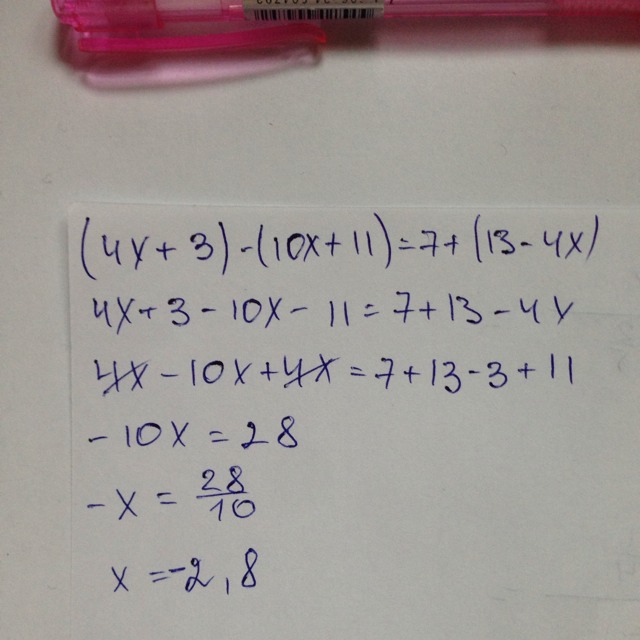 (4x + 3) - (10x + 11) = 7 + (13 - 4x)
4x + 3 - 10x - 11 = 7 + 13 - 4x
4x - 10x + 4x = 7 + 13 - 3 + 11
- 10x = 28
- x = 28/10
x = -2,8